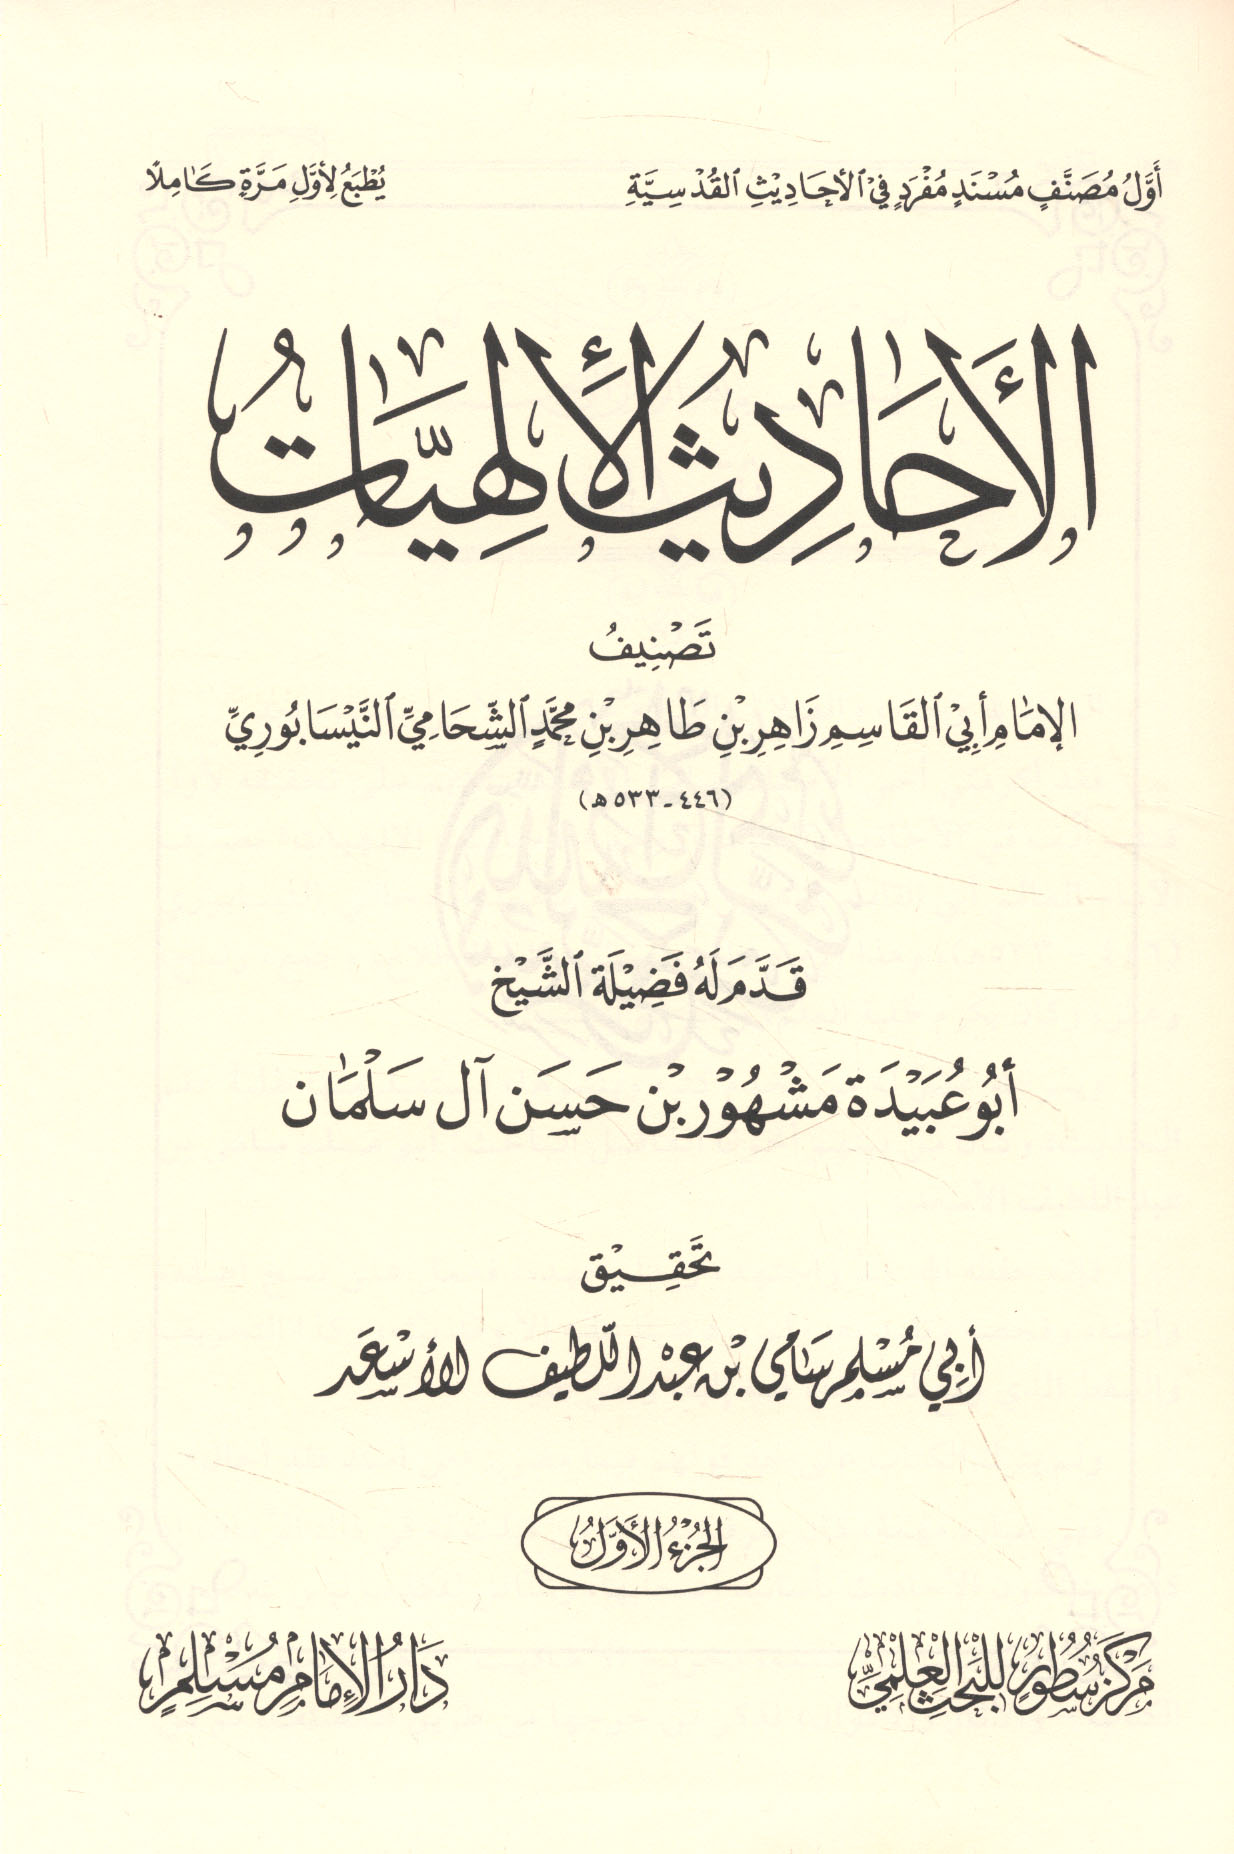 أَوَّلُ مُصَنَّفٍ مُسْنَدٍ مُفْرَدٍ فِي ٱلْأَحَادِيْثِ ٱلقُدْسِيَّةِ
يُطْبَعُ لِأَوَّلِ مَرَّةٍ كَامِلًا
الأَحَادِيثُ الأَلِهِيَّاتُ
تَصْنِيفُ
الإِمَامِ أَبِيْ ٱلقَاسِمِ زَاهِرِ بْنِ طَاهِرِ بْنِ مُحَمَّدٍ ٱلشَّحَامِيِّ ٱلنَّيْسَابُورِيِّ
(٤٤٦ - ٥٣٣ هـ)
قَدَّمَ لَهُ فَضِيْلَة ٱلشَّيْخ
أَبُو عُبَيْدَة مَشْهُوْر بْن حَسَن آل سَلْمَان
تَحْقِيْق
أَبِي مُسْلِم سَامِي بْن عَبْد اللَّطِيف الأَسْعَد
الجُزْءُ الأَوَّلُ
مَرْكَزُ سُطُورٍ لِلبَحْثِ العِلْمِيِّ
دَارُ الإِمَامِ مُسْلِمٍ